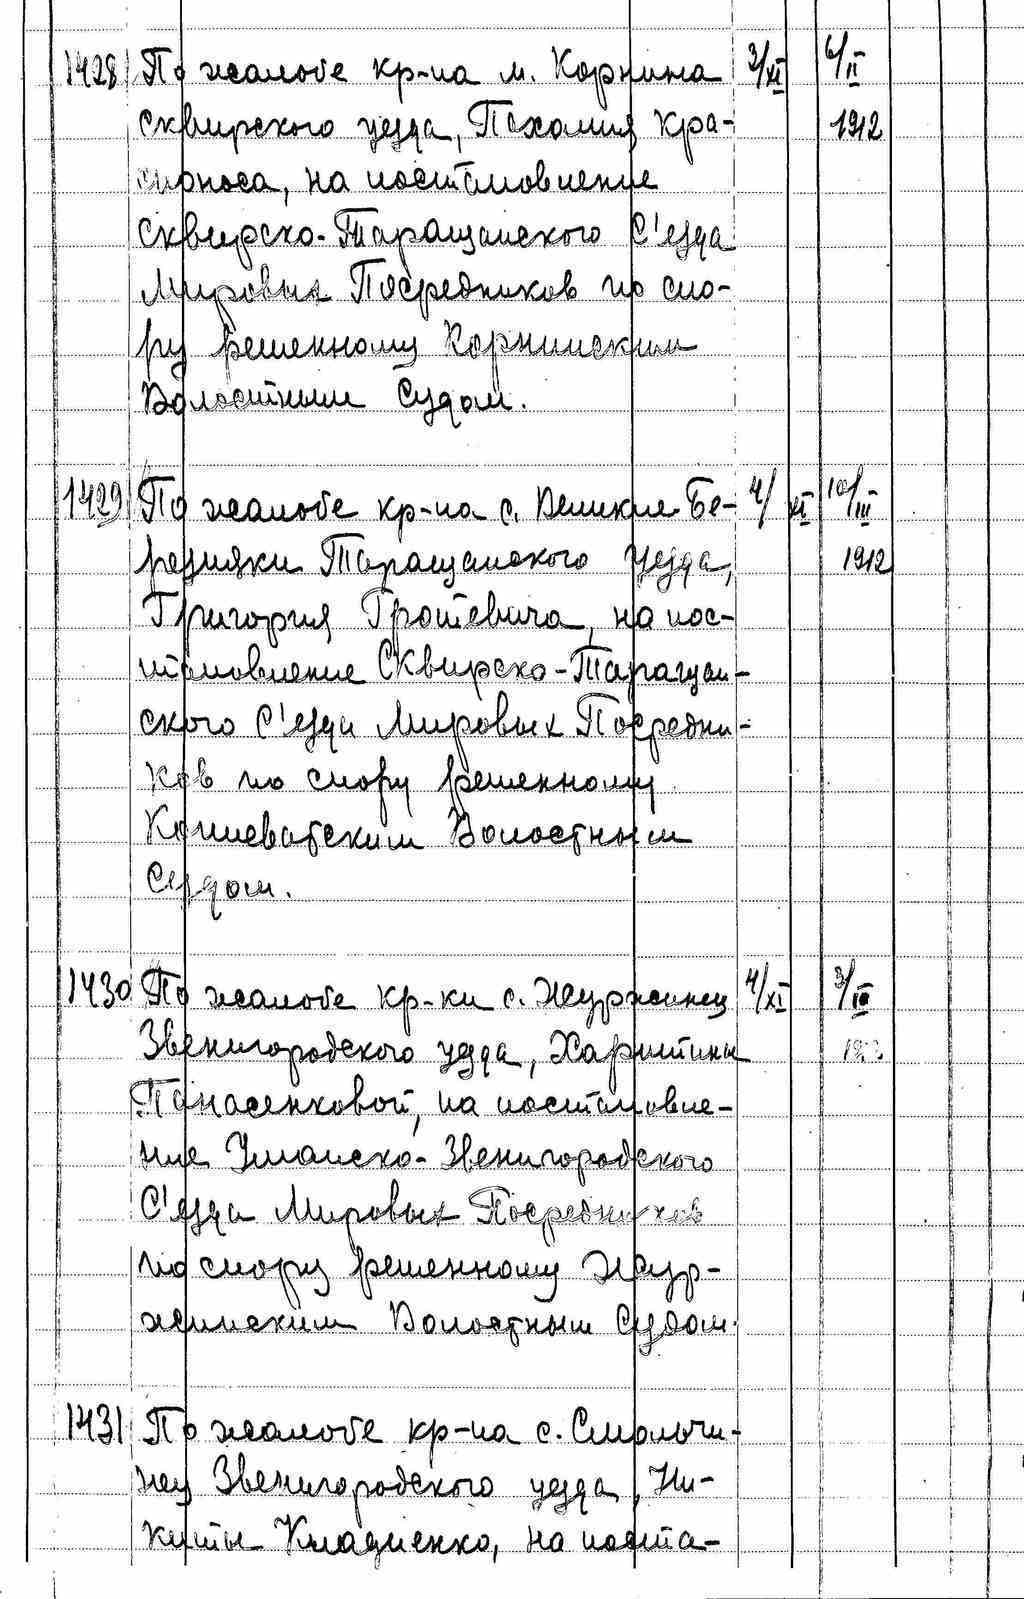 1428 По жалобе кр-на м. Корнина 3/XI 6/II
Сквирского уезда, Пахомия Кра- 1912
сирноса, на постановление
Сквирско-Таращанского С'езда
Мировых Посредников по спо-
ру решенному Корнинским
Волостным Судом.
1429 По жалобе кр-на с. Великие Бе- 4/XI 10/III
резняки Таращанского уезда, 1912
Григория Гротевича, на пос-
тановление Сквирско-Таращан-
ского С'езда Мировых Посредни-
ков по спору решенному
Кошеватским Волостным
Судом.
1430 По жалобе кр-ки с. Журжинец 4/XI 3/III
Звенигородского уезда, Харитины
Панасенковой, на постановле-
ние Уманско-Звенигородского
С'езда Мировых Посредников
по спору решенному Жур-
жинским Волостным Судом.
1431 По жалобе кр-на с. Смольчи-
нец Звенигородского уезда, Ни-
киты Кладиенко, на поста-